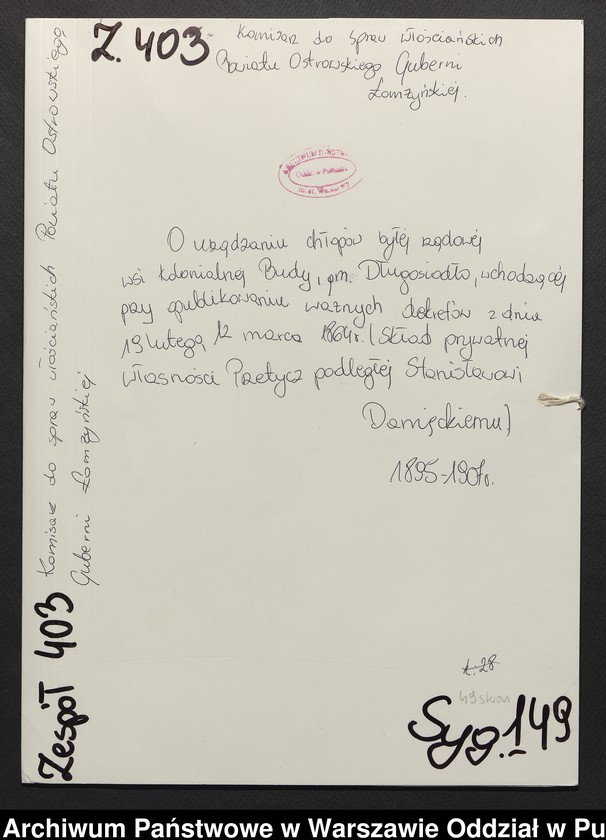 Z. 403
Komisarz do spraw włościańskich
Powiatu Ostrowskiego Guberni
Łomżyńskiej.
O urządzaniu chłopów byłej rządowej
wsi kolonialnej Budy, gm. Długosiodło, wchodzącej
przy opublikowaniu ważnych dekretów z dnia
19 lutego, 12 marca 1864r. (Skład prywatnej
własności Przetycz podległej Stanisławowi
1895-1907r.
k. 28
49 stron
Syg. 149
Zespół 403
Komisarz do spraw włościańskich Powiatu Ostrowskiego
Guberni Łomżyńskiej
Archiwum Państwowe w Warszawie Oddział w Pu